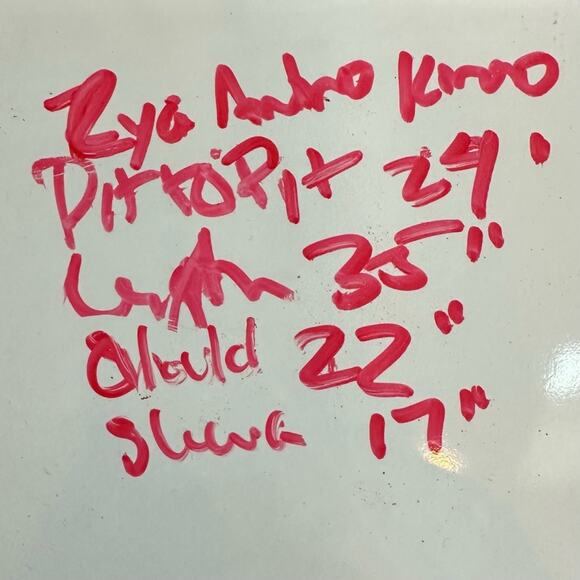 Zya Andro Kimo
Pit to Pit 29'
Length 35"
Should 22"
Sleeve 17"